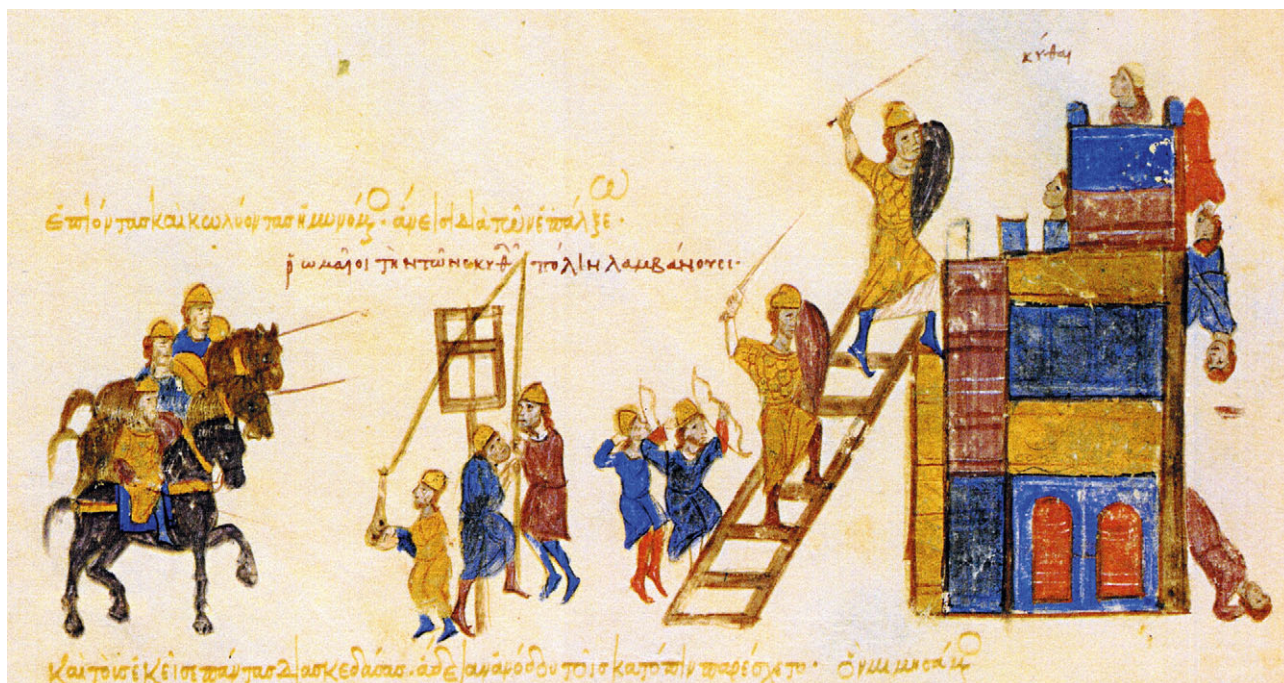 κύθαι
ἐπιόντας καὶ κωλύοντας ἠμυνόμ· ἄνεισι διὰ τῶν ἐπάλξεω·
ῥωμαῖοι τὴν τῶν σκυθ πόλιν λαμβάνουσι·
καὶ τοὺς ἐκεῖσε πάντας διασκεδάσας· ἄδειαν ἀνόδου τοῖς κατόπιν παρέσχετο· ὃν μιμησάμο